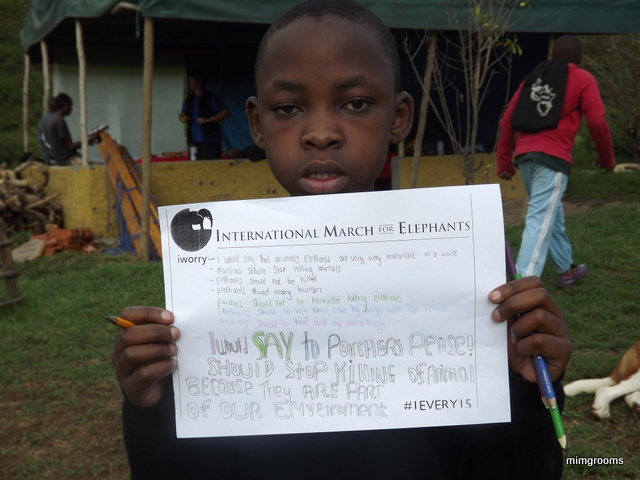 INTERNATIONAL MARCH FOR ELEPHANTS
iworry – I would say that animals Elephants are very very important in a world
- Porchers should stop killing animals
- Elephants should not be killed
- Elephants attract many tourism
Porchers should not be killing elephants
I would SAY to PORCHERS PEASE!
SHOULD STOP KILLING OF ANIMAL
BECAUSE THEY ARE PART
OF OUR ENVEIRNMENT
#1EVERY15
mimgrooms